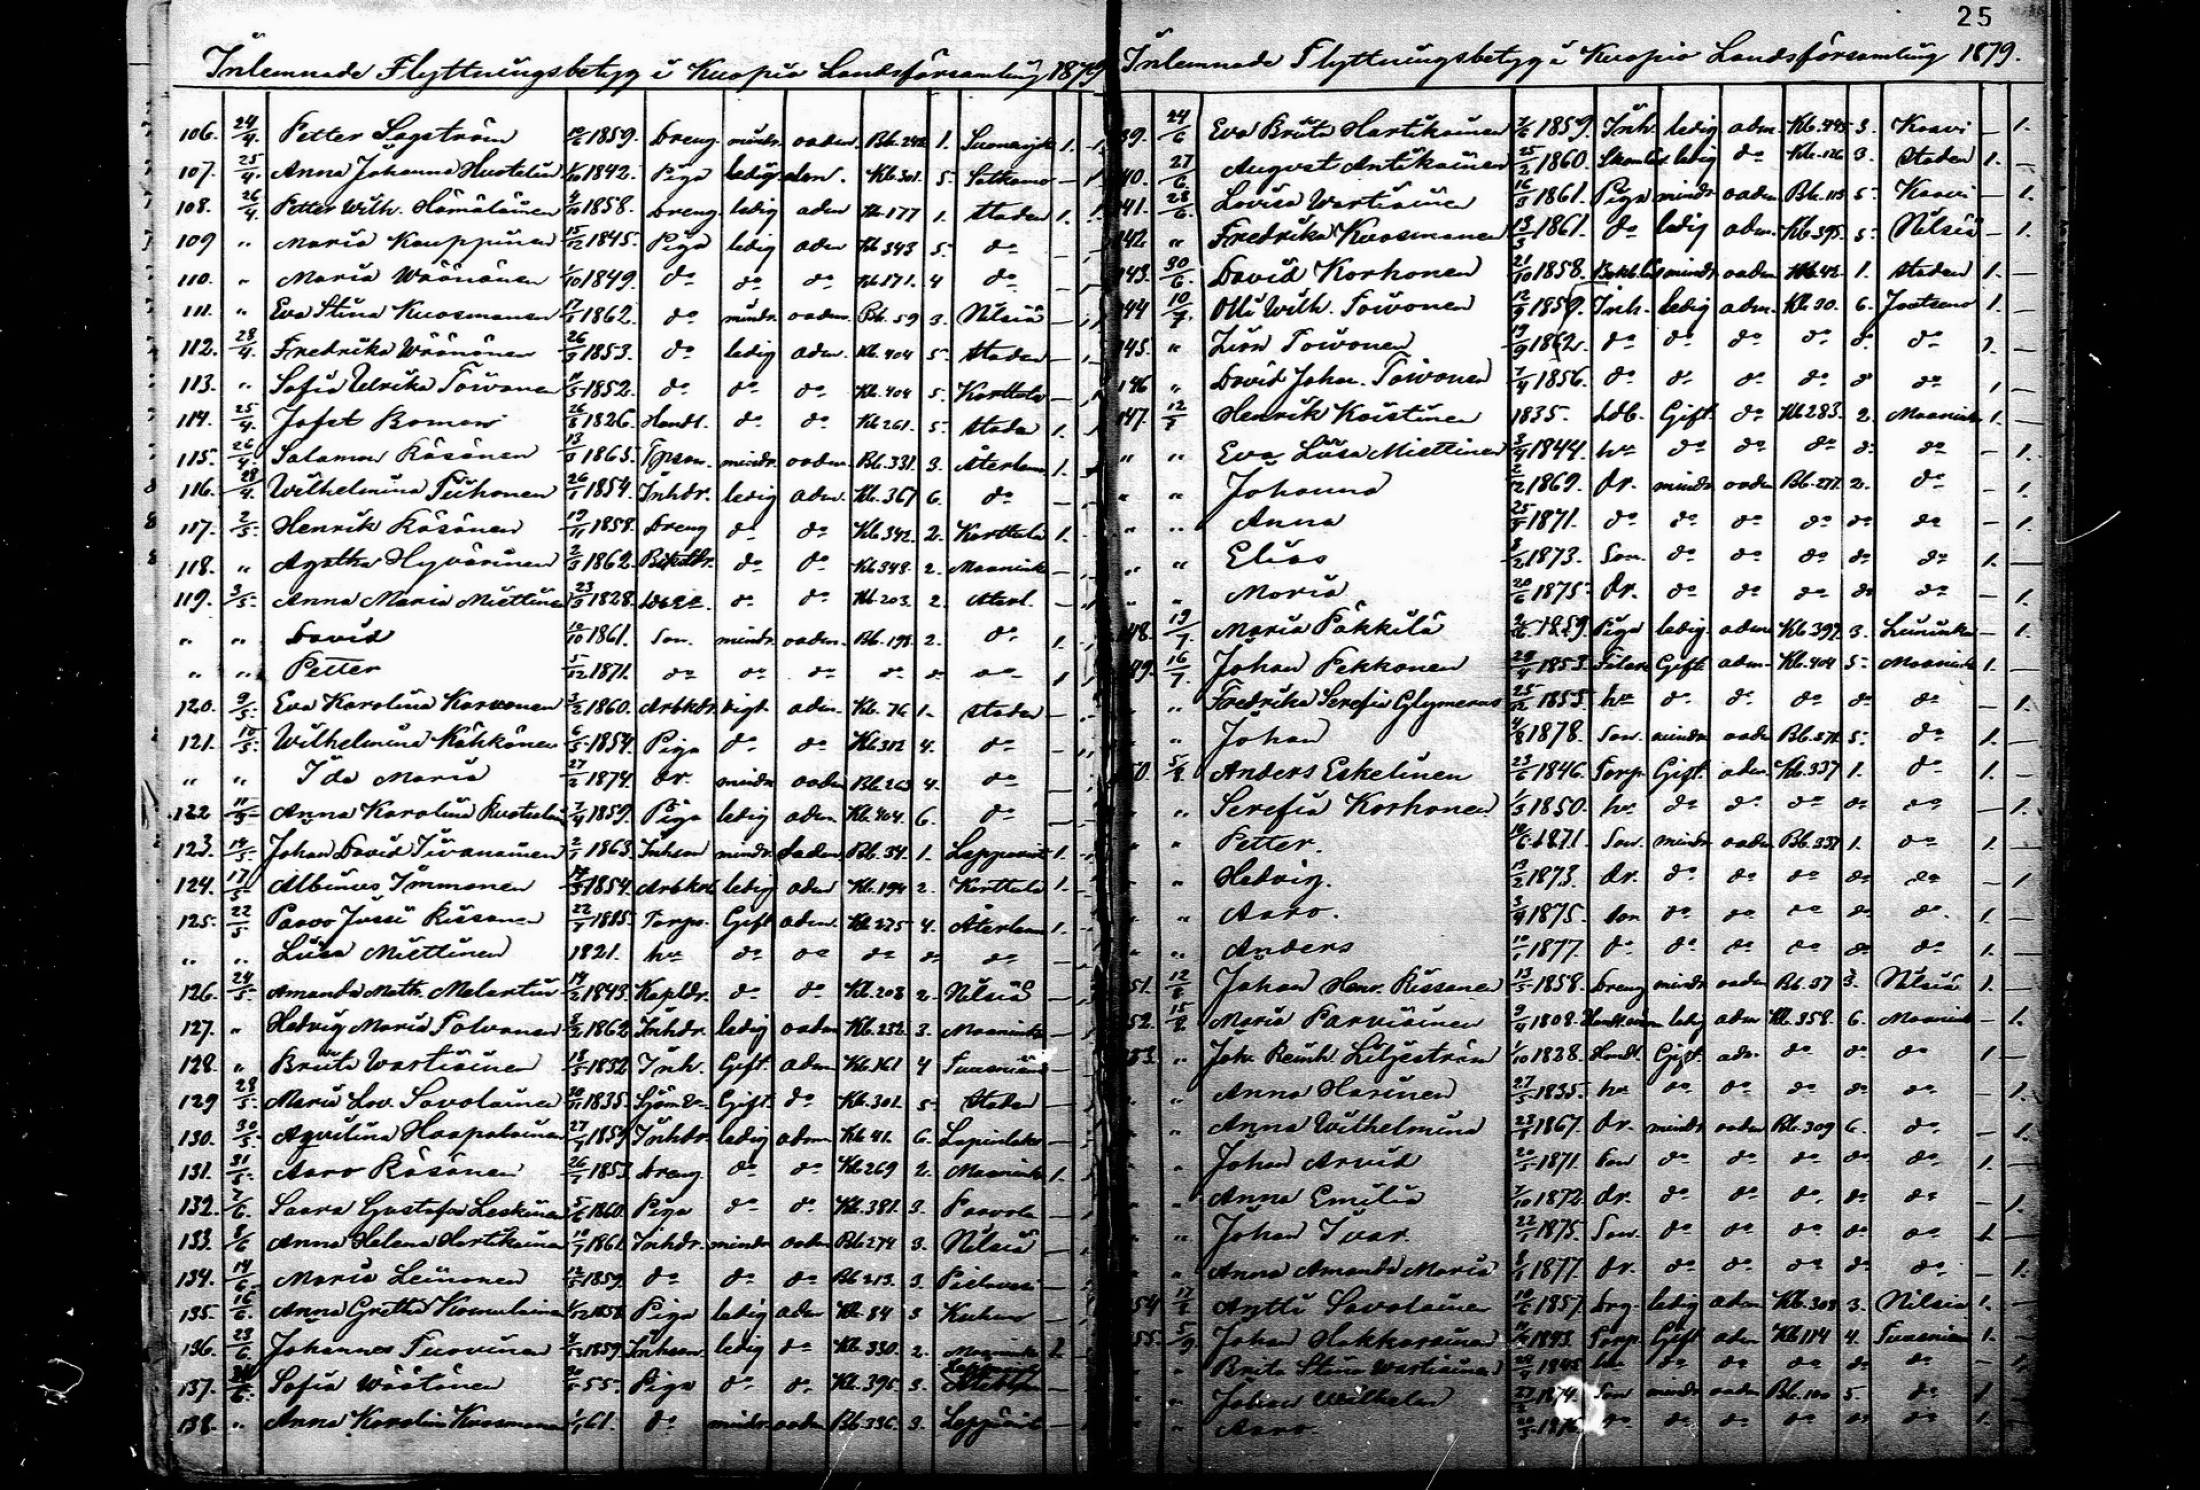 25
Inlemnade Flyttningsbetyg i Kuopio Landsförsamling 1879
106. 24/4. Petter Lagström 1859. Dreng mindr. oadm. Bb. 242 1. 1.
107. 25/4. Anna Johanna 1842. Piga ledig adm. Kb. 301. 5. Sotkamo — 1
108. 26/4. Petter Wilh. Hämäläinen 1858. Dreng. ledig adm Kb. 177 1. Staden 1.
109 " Maria Kauppinen 15/12 1845. Piga ledig adm Kb 343 5. do —
110. " Maria Wäänänen 1/10 1849. do do do Kb 171. 4 do —
111. " Eva Stina Kuosmanen 1862. do mindr. oadm. Bb. 59 3. Nilsiä —
112. 28/4. Fredrika Wäänänen 1853. do ledig adm. Kb. 404 5. Staden —
113. " Sofia Ulrika Toivanen 1852. do do do Kb. 404 5. Karttula —
114. 25/4. Jafet Boman 1826. Handl. do do Kb 261. 5. Staden 1.
115. 26/4. Salamon Räsänen 1863. mindr. oadm. Bb. 331 3. Återkom 1.
116. 28/4. Wilhelmina Tiihonen 1854. Inhdr. ledig adm. Kb. 367 6. do —
117. 2/5. Henrik Räsänen 1858. Dreng do do Kb 342. 2. Karttula 1.
118. " Agatha Hyvärinen 1862. do do Kb 348. 2. Maaninka —
119. 3/5. Anna Maria Miettinen 1828. do do Kb 203. 2. Återk. —
" " David 10/10 1861. Son. mindr. oadm. Bb. 198. 2. do 1.
" " Petter 5/12 1871. do do do do do do 1
120. 9/5. Eva Karolina Karvonen 3/2 1860. Arbkdr. adm. Kb. 76 1. Staden —
121. 10/5. Wilhelmina Kähkönen 6/5 1854. Piga do do Kb 312 4. do —
" " Ida Maria 27/2 1874. dr. mindr oadm Bb. 263 4. do —
122 11/5 Anna Karolina 1859. Piga ledig adm. Kb. 404. 6. do —
123. 14/5. Johan David Iivanainen 1863. Inhson mindr. oadm. Bb. 34. 1. Leppävirt 1.
124. 17/5 Albinus Immonen 1854. Arbkrl ledig adm Kb. 194 2. Karttula 1.
125. 22/5 Paavo Jussi Rissanen 1815. Torp. Gift adm. Kb. 225 4. Återkom 1.
" " Liisa Miettinen 1821. hu do do do do do —
126. 24/5. Amanda Math. Melartin 14/2 1843. Kapldr. do do Kb. 208 2. Nilsiä —
127. " Hedvig Maria Tolvanen 1862. Inhdr. ledig oadm Kb. 232. 3. Maaninka —
128. " Briita Wartiainen 18/5 1832 Inh. Gift. adm Kb. 161 4 Tuusniemi —
129 28/5. Maria Lov. Savolainen 1835. Gift. do Kb. 301. 5 Staden —
130. 30/5 Aqvilina Haapalainen 1859. Inhdr. ledig adm Kb 41. 6. Lapinlaks —
131. 31/5. Aaro Räsänen 1853. Dreng. do do Kb 269 2. Maaninka 1.
132. 7/6. Saara Gustafva Leskinen 1860. Piga do do Kb. 381. 3. Paavola —
133. 8/6 Anna Helena Hartikainen 1861. Inhdr. mindr oadm Bb 274 3. Nilsiä —
134. 14/6. Maria Leinonen 1859. do do do Bb 213. 3 Pielavesi —
135. 16/6. Anna Gretha Komulainen Piga ledig adm Kb. 84 3 Kuhmo —
136. 23/6. Johannes Tuovinen 1859. Inhson. ledig do Kb. 330. 2. Maaninka 1.
137. Sofia Väätänen 55. Piga do do Kb. 395. 3.
138. " Anna Karolin Kuosmanen 61. do mindr. oadm Bb. 336. 3. Leppävirt —
Inlemnade Flyttningsbetyg i Kuopio Landsförsamling 1879.
39. 24/6 Eva Brita Hartikainen 1859. Inh. ledig adm. Kb. 445 3. Kaavi — 1.
40. 27/6 August Antikainen 25/2 1860. ledig do Kb. 126 3. Staden 1. —
41. 28/6. Lovisa Wartiainen 16/3 1861. Piga mindr. oadm Bb. 113 5. Kaavi — 1.
42. " Fredrika Kuosmanen 13/3 1861. do ledig adm. Kb. 395. 5. Nilsiä — 1.
43. 30/6. David Korhonen 21/10 1858. mindr oadm 42. 1. Staden 1. —
44 10/7. Otti Wilh. Toivonen 12/9 1859. Inh. ledig adm. Kb. 30. 6. Joutseno 1. —
45. " Toivonen 19/9 1862. do do do do do do 1. —
46 " David Johan. Toivonen 7/4 1856. do do do do do do 1 —
147. 12/7 Henrik Koistinen 1835. Ldb. Gift. do Kb 283. 2. Maanink 1. —
" " Eva Liisa Miettinen 1844. hu do do do do do — 1.
" " Johanna 1869. dr. mindr oadm Bb. 277. 2. do — 1
" " Anna 1871. do do do do do do — 1.
" " Elias 1873. Son. do do do do do 1. —
" " Maria 20/6 1875. dr. do do do do do — 1.
48. 19/7. Maria Pakkila 1859. Piga ledig adm Kb. 397. 3. — 1.
49. 16/7. Johan Pekkonen 1853. Gift adm. Kb. 404 5. Maanink 1. —
" " Fredrika Serefia 25/12 1855. hu do do do do do — 1.
" " Johan 4/8 1878. Son mindr oadm Bb. 5. do 1. —
50. 5/8. Anders Eskelinen 1846. Torp. Gift. adm. Kb. 337 1. do 1. —
" " Serefia Korhonen 1/3 1850. hu do do do do do — 1.
" " Petter. 1871. Son. mindr oadm Bb. 337 1. do 1. —
" " Hedvig. 1873. dr. do do do do do — 1
" " Aaro. 3/4 1875. son do do do do do. 1. —
" " Anders 10/1 1877. do do do do do do 1. —
51. 12/8 Johan Henr. Rissanen 13/5 1858. Dreng mindr oadm Bb. 37 3. Nilsiä 1. —
52. 15/8. Maria Parviainen 9/4 1808. ledig adm Kb. 358. 6. Maanink — 1.
53. " Joh. Reinh. Liljeström 1/10 1828. Handl. Gift. adm. do do do 1 —
" " Anna Harinen 27/5 1835. hu do do do do do — 1.
" " Anna Wilhelmina 1867. dr. mindr oadm Bb. 309 6. do — 1.
" " Johan Arvid 20/5 1871. Son do do do do do 1. —
" " Anna Emilia 7/10 1872. dr. do do do do do — 1.
" " Johan Ivar. 22/1 1875. Son. do do do do do 1 —
" " Anna Amanda Maria 1877. dr. do do do do do — 1.
54 17/8 Antti Savolainen 1857. Drg. ledig adm Kb. 308 3. Nilsiä 1. —
55. 5/9. Johan Hakkarainen 1843. Torp. Gift adm Kb 114 4. Tuusniem 1. —
" " Brita Stina Wartiainen hu do do do do do — 1.
" " Johan Wilhelm 1874. Son mindr oadm Bb. 100 5. do 1 —
" " Aaro. 1876. do do do do do do 1. —